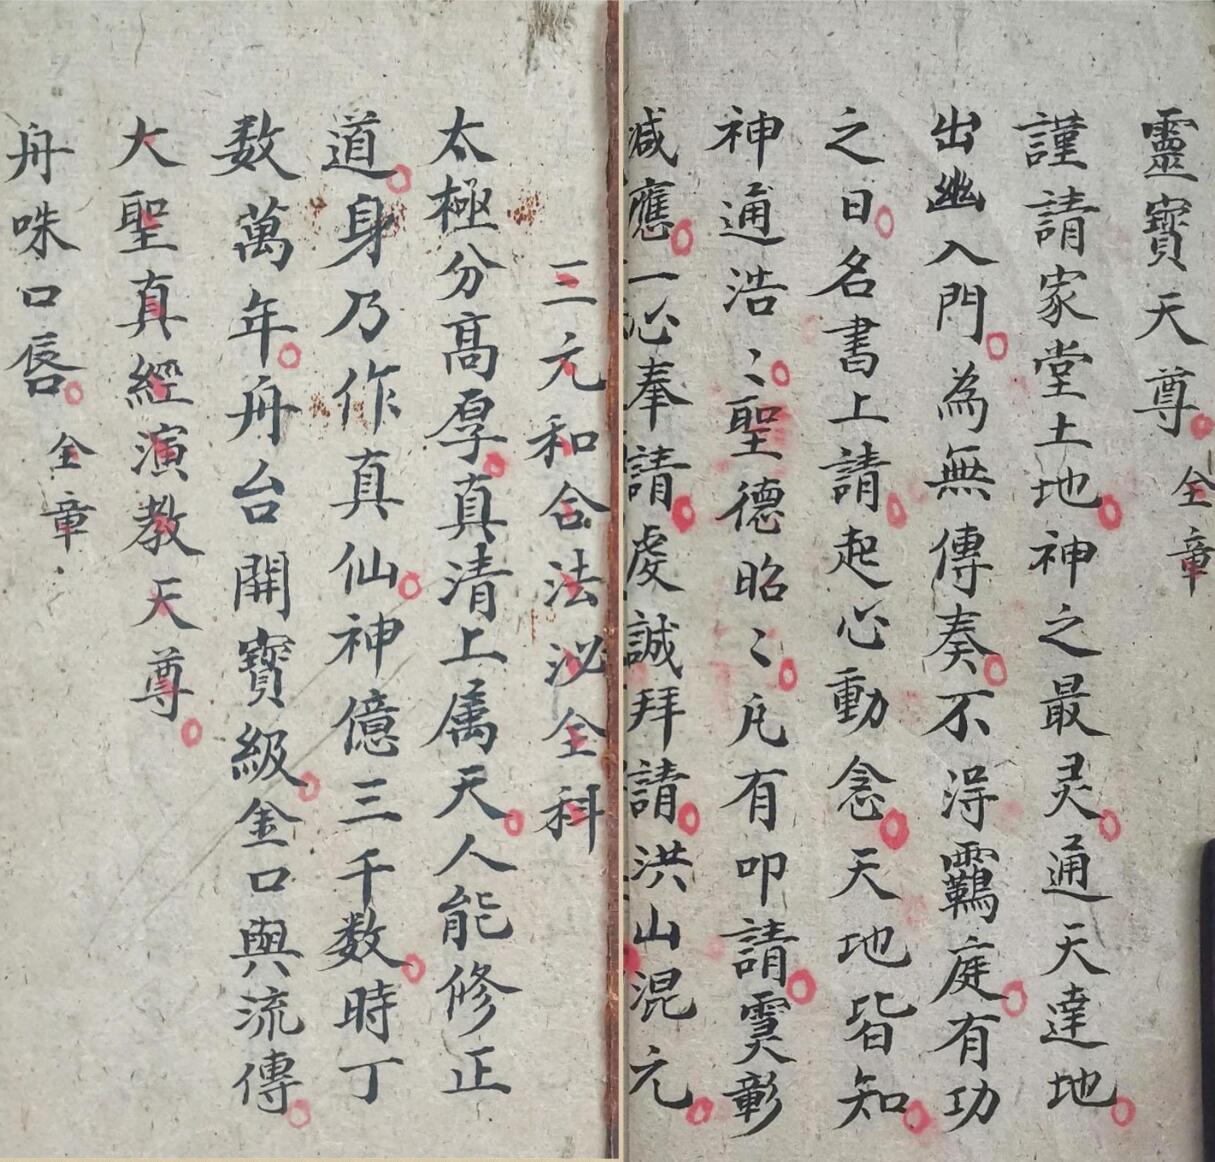 靈寶天尊 全章
謹請家堂土地神之最灵通天達地
出幽入門為無傳奏不淂靏庭有功
之日名書上請起心動念天地皆知
神通浩〻聖德昭〻凡有叩請彰
減應一心奉請虔誠拜請洪山混元
三元和合法泌全科
太極分高厚真清上属天人能修正
道身乃作真仙神億三千数時丁
数萬年舟台開寶級金口與流傳
大聖真經演教天尊
舟咮口唇 全章